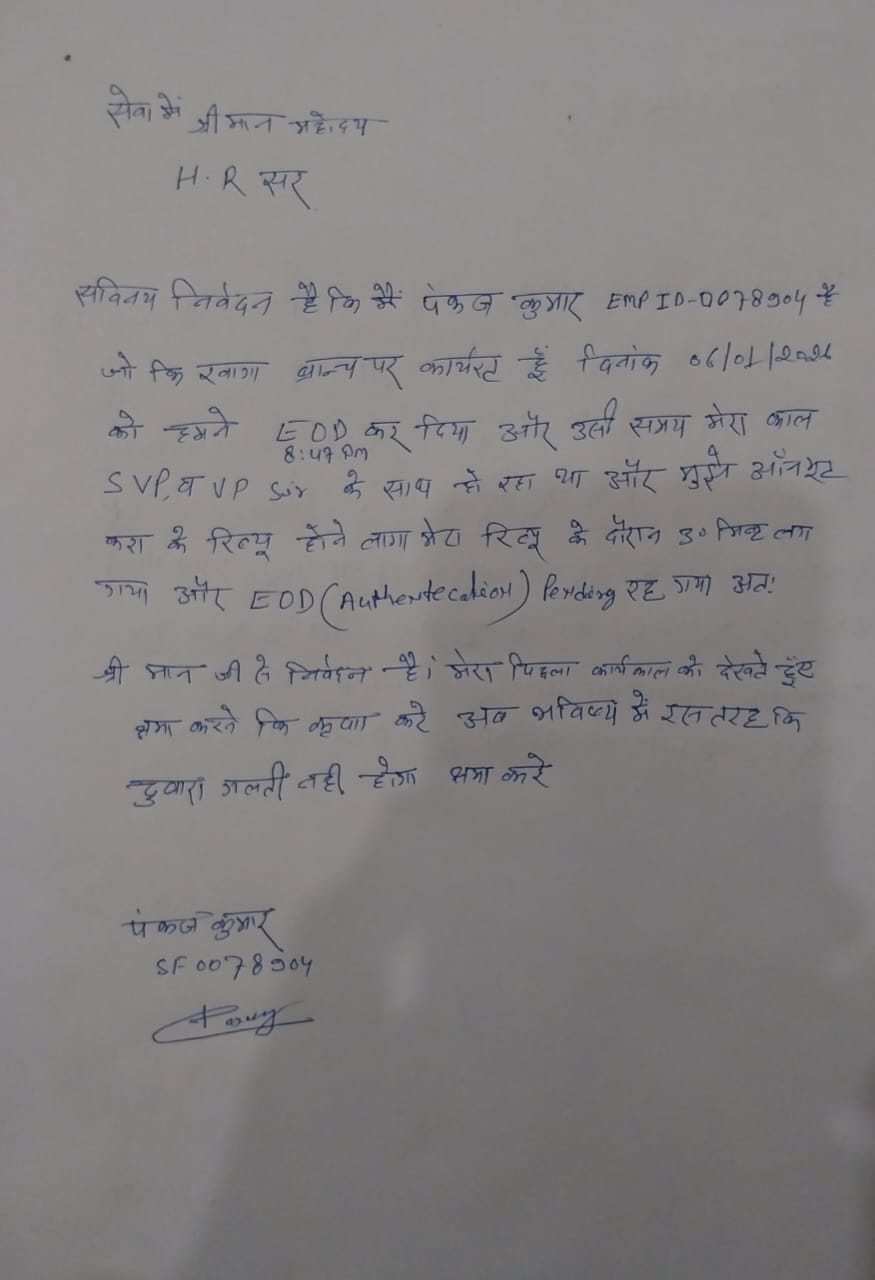 सेवा में श्री मान महोदय
H.R सर
सविनय निवेदन है कि मैं पंकज कुमार EMP ID-0078904 है
जो कि खागा ब्रान्च पर कार्यरत हूँ दिनांक 06/01/2026
को हमने EOD कर दिया और उसी समय मेरा काल
8:47 Pm
SVP, व VP Sir के साथ हो रहा था और मुझे ऑनमूट
करा के रिव्यू होने लागा मेरा रिव्यू के दौरान 30 मिनट लग
गया और EOD (Authentecation) Pending रह गया अतः
श्री मान जी से निवेदन है। मेरा पिछला कार्यकाल को देखते हुँए
क्षमा करने कि कृपा करे अब भविष्य में इस तरह कि
दुवारा गलती नही होगा क्षमा करे
पंकज कुमार
SF0078904